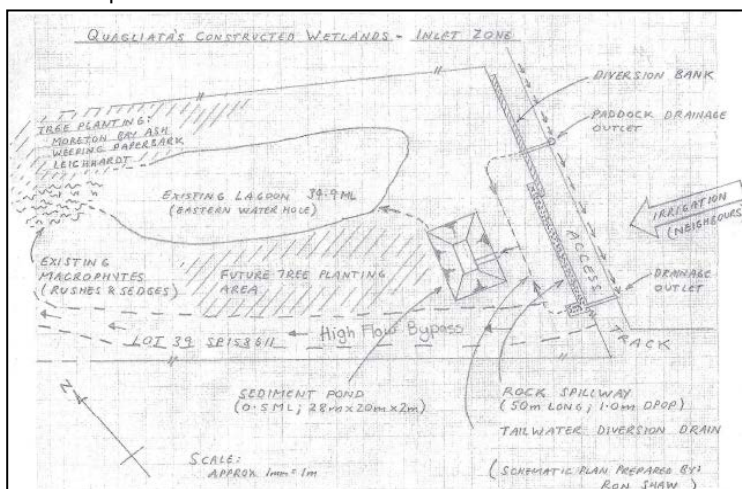 QUAGLIATA'S CONSTRUCTED WETLANDS - INLET ZONE
DIVERSION BANK
PADDOCK DRAINAGE
OUTLET
TREE PLANTING:
MORETON BAY ASH
WEEPING PAPERBARK
LEICHHARDT
EXISTING LAGOON 34.9ML
(EASTERN WATER HOLE)
IRRIGATION
(NEIGHBOURS)
EXISTING
MACROPHYTES
(RUSHES & SEDGES)
FUTURE TREE PLANTING
AREA
ACCESS
TRACK
DRAINAGE
OUTLET
High Flow Bypass
LOT 39 SP158611
SEDIMENT POND
(0.5ML; 28m x 20m x 2m)
ROCK SPILLWAY
(50m LONG; 1.0m DROP)
TAILWATER DIVERSION DRAIN
N
SCALE:
APPROX 1mm = 1m
(SCHEMATIC PLAN PREPARED BY:
RON SHAW)